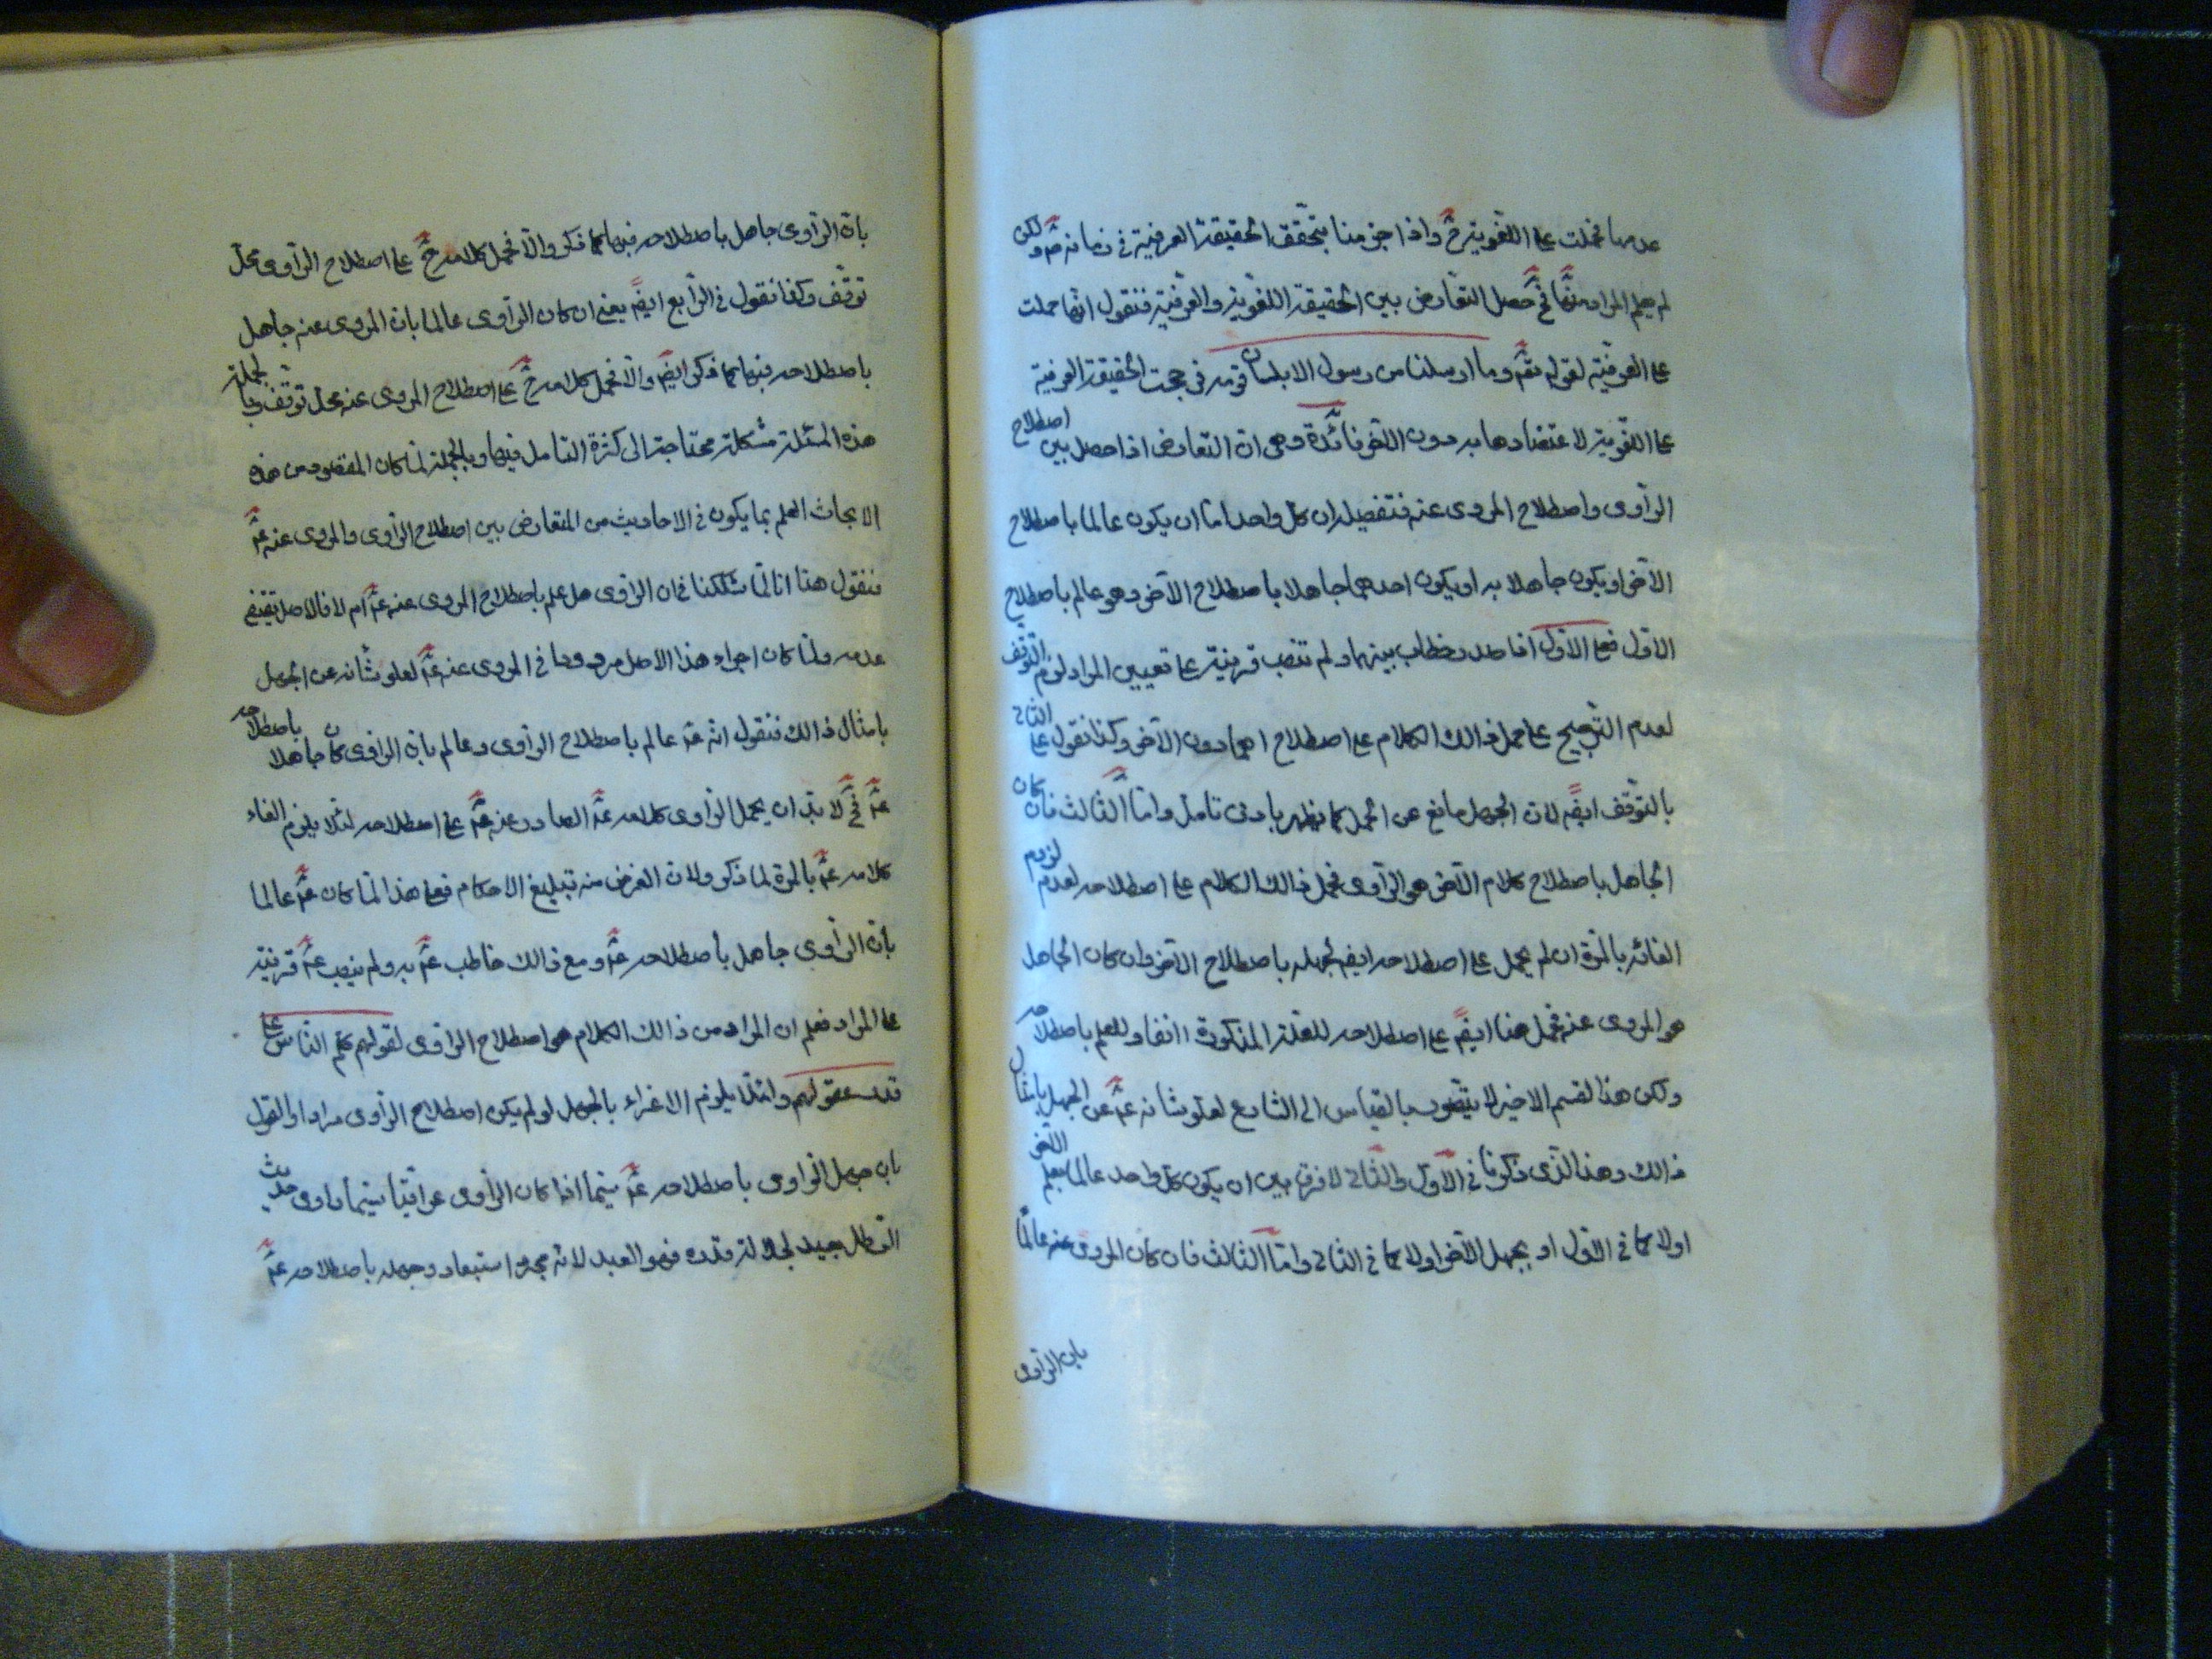 عدمها فحملت على اللغوية ح واذا جزمنا بتحقق الحقيقة العرفية في زمانه ولكن
لم يعلم المراد منها فح حصل التعارض بين الحقيقة اللغوية والعرفية فنقول انها حملت
على العرفية لقوله تعم وما ارسلنا من رسول الا بلسان قومه فرجحت الحقيقة العرفية
على اللغوية لاعتضادها به دون الاخر فائدة وهي ان التعارض اذا حصل بين اصطلاح
الراوى واصطلاح المروى عنه فتفصيله ان كل واحد اما ان يكون عالما باصطلاح
الاخر او يكون جاهلا به او يكون احدهما جاهلا باصطلاح الاخر وهو عالم باصطلاح
الاول فعلى الاول اذا صدر خطاب بينهما ولم تنصب قرينة على تعيين المراد لزم التوقف
لعدم الترجيح على حمل ذالك الكلام على اصطلاح احدهما دون الاخر وكذا نقول على الثانى
بالتوقف ايضم لان الجهل مانع عن الحمل كما يظهر بادنى تامل واما الثالث فان كان
الجاهل باصطلاح كلام الاخر هو الراوى فحمل ذالك الكلام على اصطلاحه لعدم لزوم
الفائدة بالمرة ان لم يحمل على اصطلاحه ايضم لجهله باصطلاح الاخر وان كان الجاهل
هو المروى عنه فحمل هنا ايضم على اصطلاحه للعلة المذكورة انفا وللعلم باصطلاحه
ولكن هذا لقسم الاخير لا يتصور بالقياس الى الشارع لعلو شانه عم عن الجهل بامثال
ذالك وهذا الذى ذكرنا في الاول والثانى لا فرق بين ان يكون كل واحد عالما بعلم الاخر
اولا كما في الاول او بجهل الاخر اولا كما في الثانى واما الثالث فان كان المروى عنه عالما
بان الراوى
بان الراوى جاهل باصطلاحه فبها كما ذكر والا فحمل كلامه ح على اصطلاح الراوى محل
توقف وكذا نقول في الرابع ايضم يعنى ان كان الراوى عالما بان المروى عنه جاهل
باصطلاحه فبها كما ذكر ايضم والا فحمل كلامه ح على اصطلاح المروى عنه محل توقف وبالجملة
هذه المسئلة مشكلة محتاجة الى كثرة التامل فيها وبالجملة لما كان المقصود من هذه
الابحاث العلم بما يكون في الاحاديث من التعارض بين اصطلاح الراوى والمروى عنه عم
فنقول هنا انا لما شككنا في ان الراوى هل علم باصطلاح المروى عنه عم ام لا فالاصل يقتضى
عدمه ولما كان اجراء هذا الاصل مردودا في المروى عنه عم لعلو شانه عن الجهل
بامثال ذالك فنقول انه عم عالم باصطلاح الراوى وعالم بان الراوى كان جاهلا باصطلاحه
عم فح لا بد ان يحمل الراوى كلامه عم الصادر عنه عم على اصطلاحه لئلا يلزم الغاء
كلامه عم بالمرة لما ذكر ولان الغرض منه تبليغ الاحكام فعلى هذا لما كان عم عالما
بان الراوى جاهل باصطلاحه عم ومع ذالك خاطب عم به ولم ينصب عم قرينة
على المراد فعلم ان المراد من ذالك الكلام هو اصطلاح الراوى لقولهم كلم الناس على
قدر عقولهم ولئلا يلزم الاغراء بالجهل لو لم يكن اصطلاح الراوى مرادا والقول
بان جهل الراوى باصطلاحه عم سيما اذا كان الراوى عراقيا سيما راوى حديث
الرطل بعيد لجلالة قدره فهو البعيد لانه مجرد استبعاد وجهله باصطلاحه عم